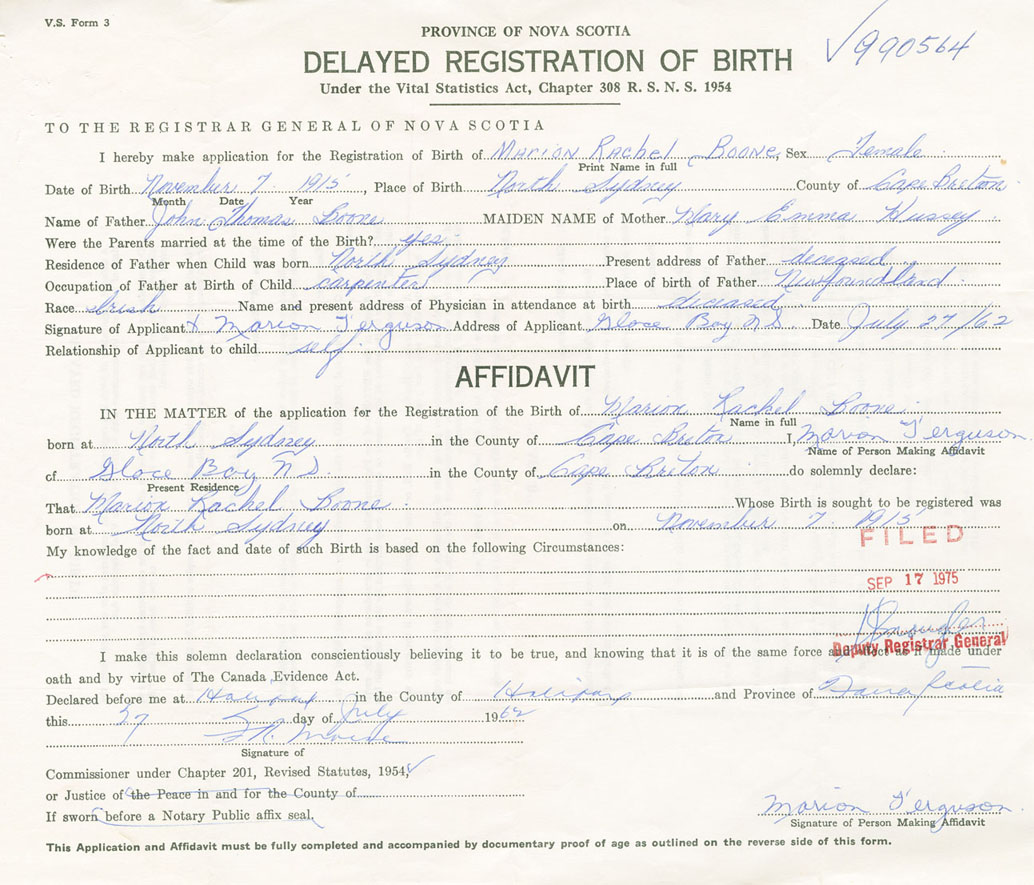 V.S. Form 3
PROVINCE OF NOVA SCOTIA
√990564
DELAYED REGISTRATION OF BIRTH
Under the Vital Statistics Act, Chapter 308 R. S. N. S. 1954
TO THE REGISTRAR GENERAL OF NOVA SCOTIA
I hereby make application for the Registration of Birth of Marion Rachel Boone, Sex Female
Print Name in full
Date of Birth November 7 1915, Place of Birth North Sydney County of Cape Breton
Month Date Year
Name of Father John Thomas Boone MAIDEN NAME of Mother Mary Emma Hussey
Were the Parents married at the time of the Birth? yes
Residence of Father when Child was born North Sydney Present address of Father deceased
Occupation of Father at Birth of Child carpenter Place of birth of Father Newfoundland
Race Irish Name and present address of Physician in attendance at birth deceased
Signature of Applicant x Marion Ferguson Address of Applicant Glace Bay NS Date July 27/62
Relationship of Applicant to child self
AFFIDAVIT
IN THE MATTER of the application for the Registration of the Birth of Marion Rachel Boone
Name in full
born at North Sydney in the County of Cape Breton I, Marion Ferguson
Name of Person Making Affidavit
of Glace Bay NS in the County of Cape Breton do solemnly declare:
Present Residence
That Marion Rachel Boone Whose Birth is sought to be registered was
born at North Sydney on November 7 1915
My knowledge of the fact and date of such Birth is based on the following Circumstances:
FILED
SEP 17 1975
Deputy Registrar General
I make this solemn declaration conscientiously believing it to be true, and knowing that it is of the same force and effect as if made under
oath and by virtue of The Canada Evidence Act.
Declared before me at Halifax in the County of Halifax and Province of Nova Scotia
this 27 day of July 1962
Signature of
Commissioner under Chapter 201, Revised Statutes, 1954, √
or Justice of the Peace in and for the County of
If sworn before a Notary Public affix seal.
Marion Ferguson
Signature of Person Making Affidavit
This Application and Affidavit must be fully completed and accompanied by documentary proof of age as outlined on the reverse side of this form.